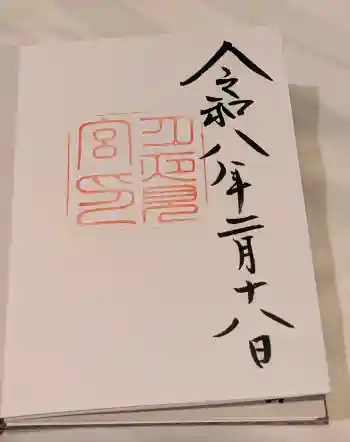 令和八年二月十八日
宮印